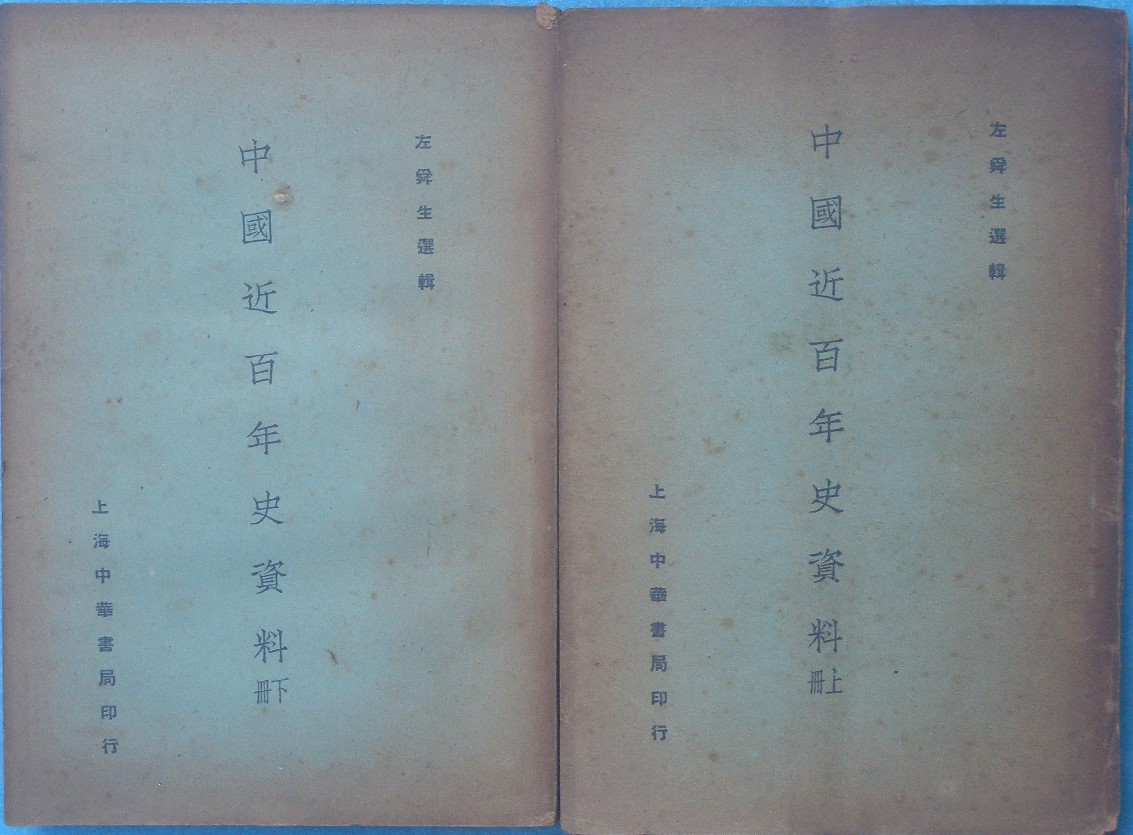 左舜生選輯
中國近百年史資料上冊
上海中華書局印行
左舜生選輯
中國近百年史資料下冊
上海中華書局印行